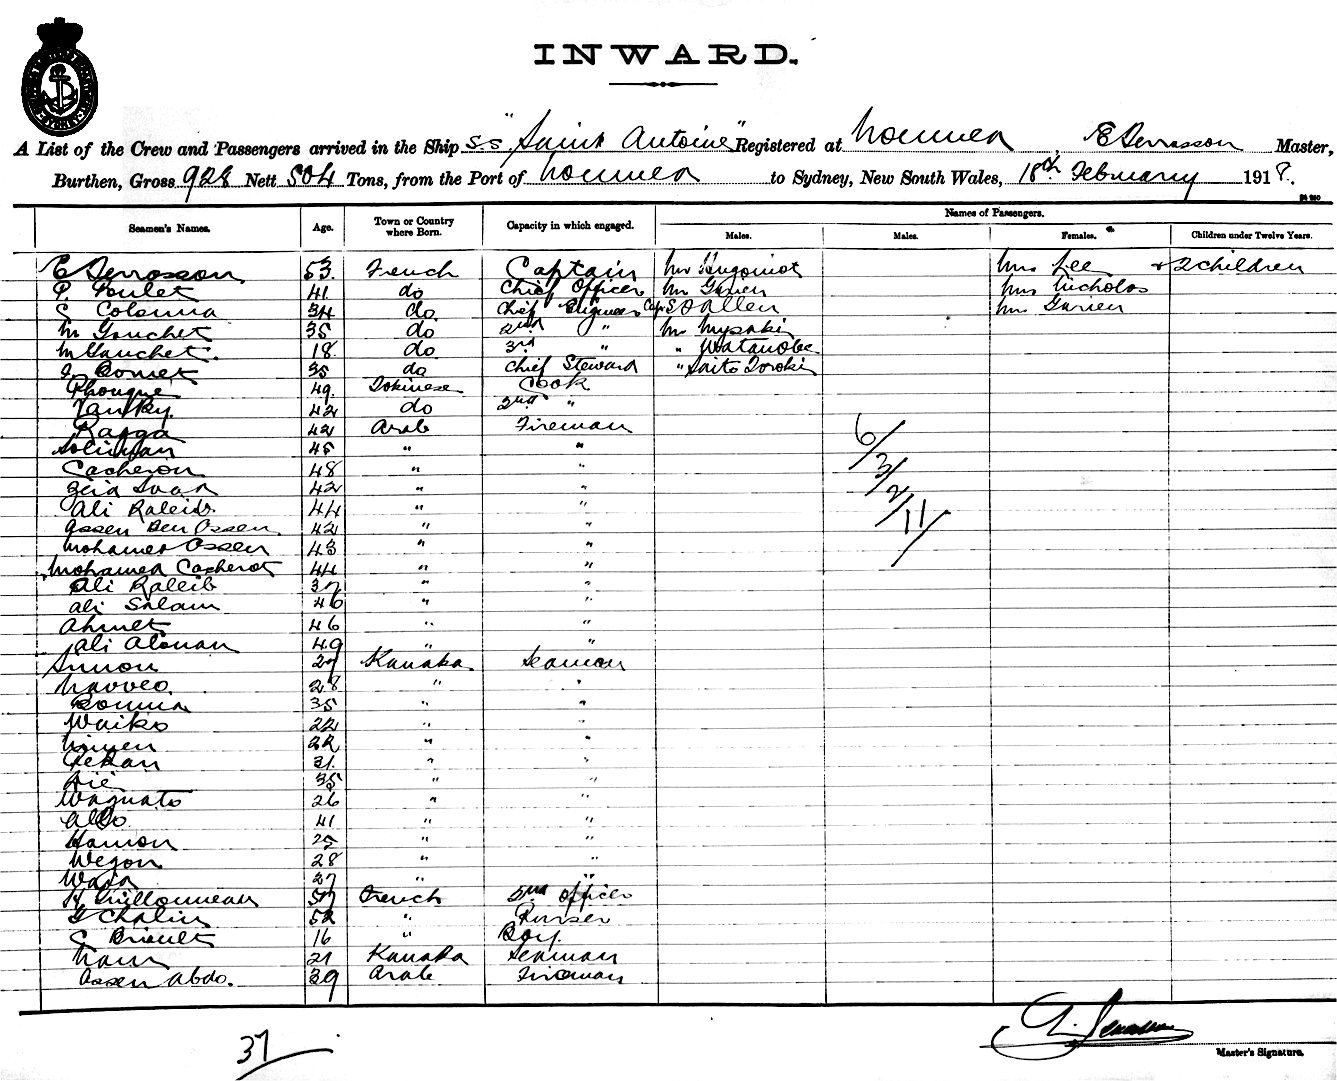 INWARD.
A List of the Crew and Passengers arrived in the Ship S.S. "Saint Antoine" Registered at Noumea, E Master,
Burthen, Gross 928 Nett 504 Tons, from the Port of Noumea to Sydney, New South Wales, 18th February 1918.
Seamen's Names. Age. Town or Country where Born. Capacity in which engaged. Names of Passengers.
Males. Males. Females. Children under Twelve Years.
E 53. French Captain Mr Hugoniot Mrs Lee + 2 children
P. Poulet 41. do Chief Officer Mr Mrs Nicholas
C Colonna 34 do. Chief Engineer Cap S O Allen Mrs
M Gauchet 35 do 2nd " Mr
M Gauchet. 18. do. 3rd " " Watanabe
Comet 35 do Chief Steward " Saito
49. Tokinese Cook
42 do 2nd "
Ragga 42 Arab Fireman
Soliman 45 " "
Cacheron 48 " "
42 " "
Ali 44 " "
Assen Ben Ossen 42 " "
Mohamed Ossen 43 " "
Mohamed Cacherot 44 " "
Ali 37 " "
Ali Salam 46 " "
Ahmet 46 " "
Ali 49 " "
Simon 27 Kanaka Seaman
28 " "
35 " "
Waiko 22 " "
22 " "
31. " "
35 " "
Wagnato 26 " "
41 " "
Hamon 25 " "
Wegon 28 " "
27 " "
H Guillonneau 57 French 2nd Officer
G Chalin 52 " Purser
C 16 " Boy.
21 Kanaka Seaman
Assen Abdo. 39 Arab Fireman
6/3/2/11/
37
Master's Signature.